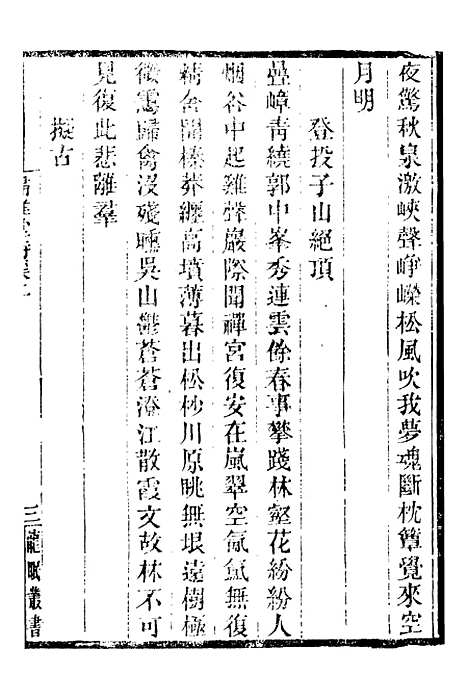 夜驚秋泉激峽聲崢嶸松風吹我夢魂斷枕簟覺來空
月明
登投子山絕頂
疊嶂青繞郭中峯秀連雲俗春事攀踐林壑花紛紛人
烟谷中起雞聲巖際聞禪宮復安在嵐翠空氤氳無復
精舍開榛莽纏高墳薄暮出松杪川原眺無垠遠樹極
微靄歸禽沒殘曛吳山鬱蒼蒼澄江散霞文故林不可
見復此悲離羣
擬古
三 龍眠叢書